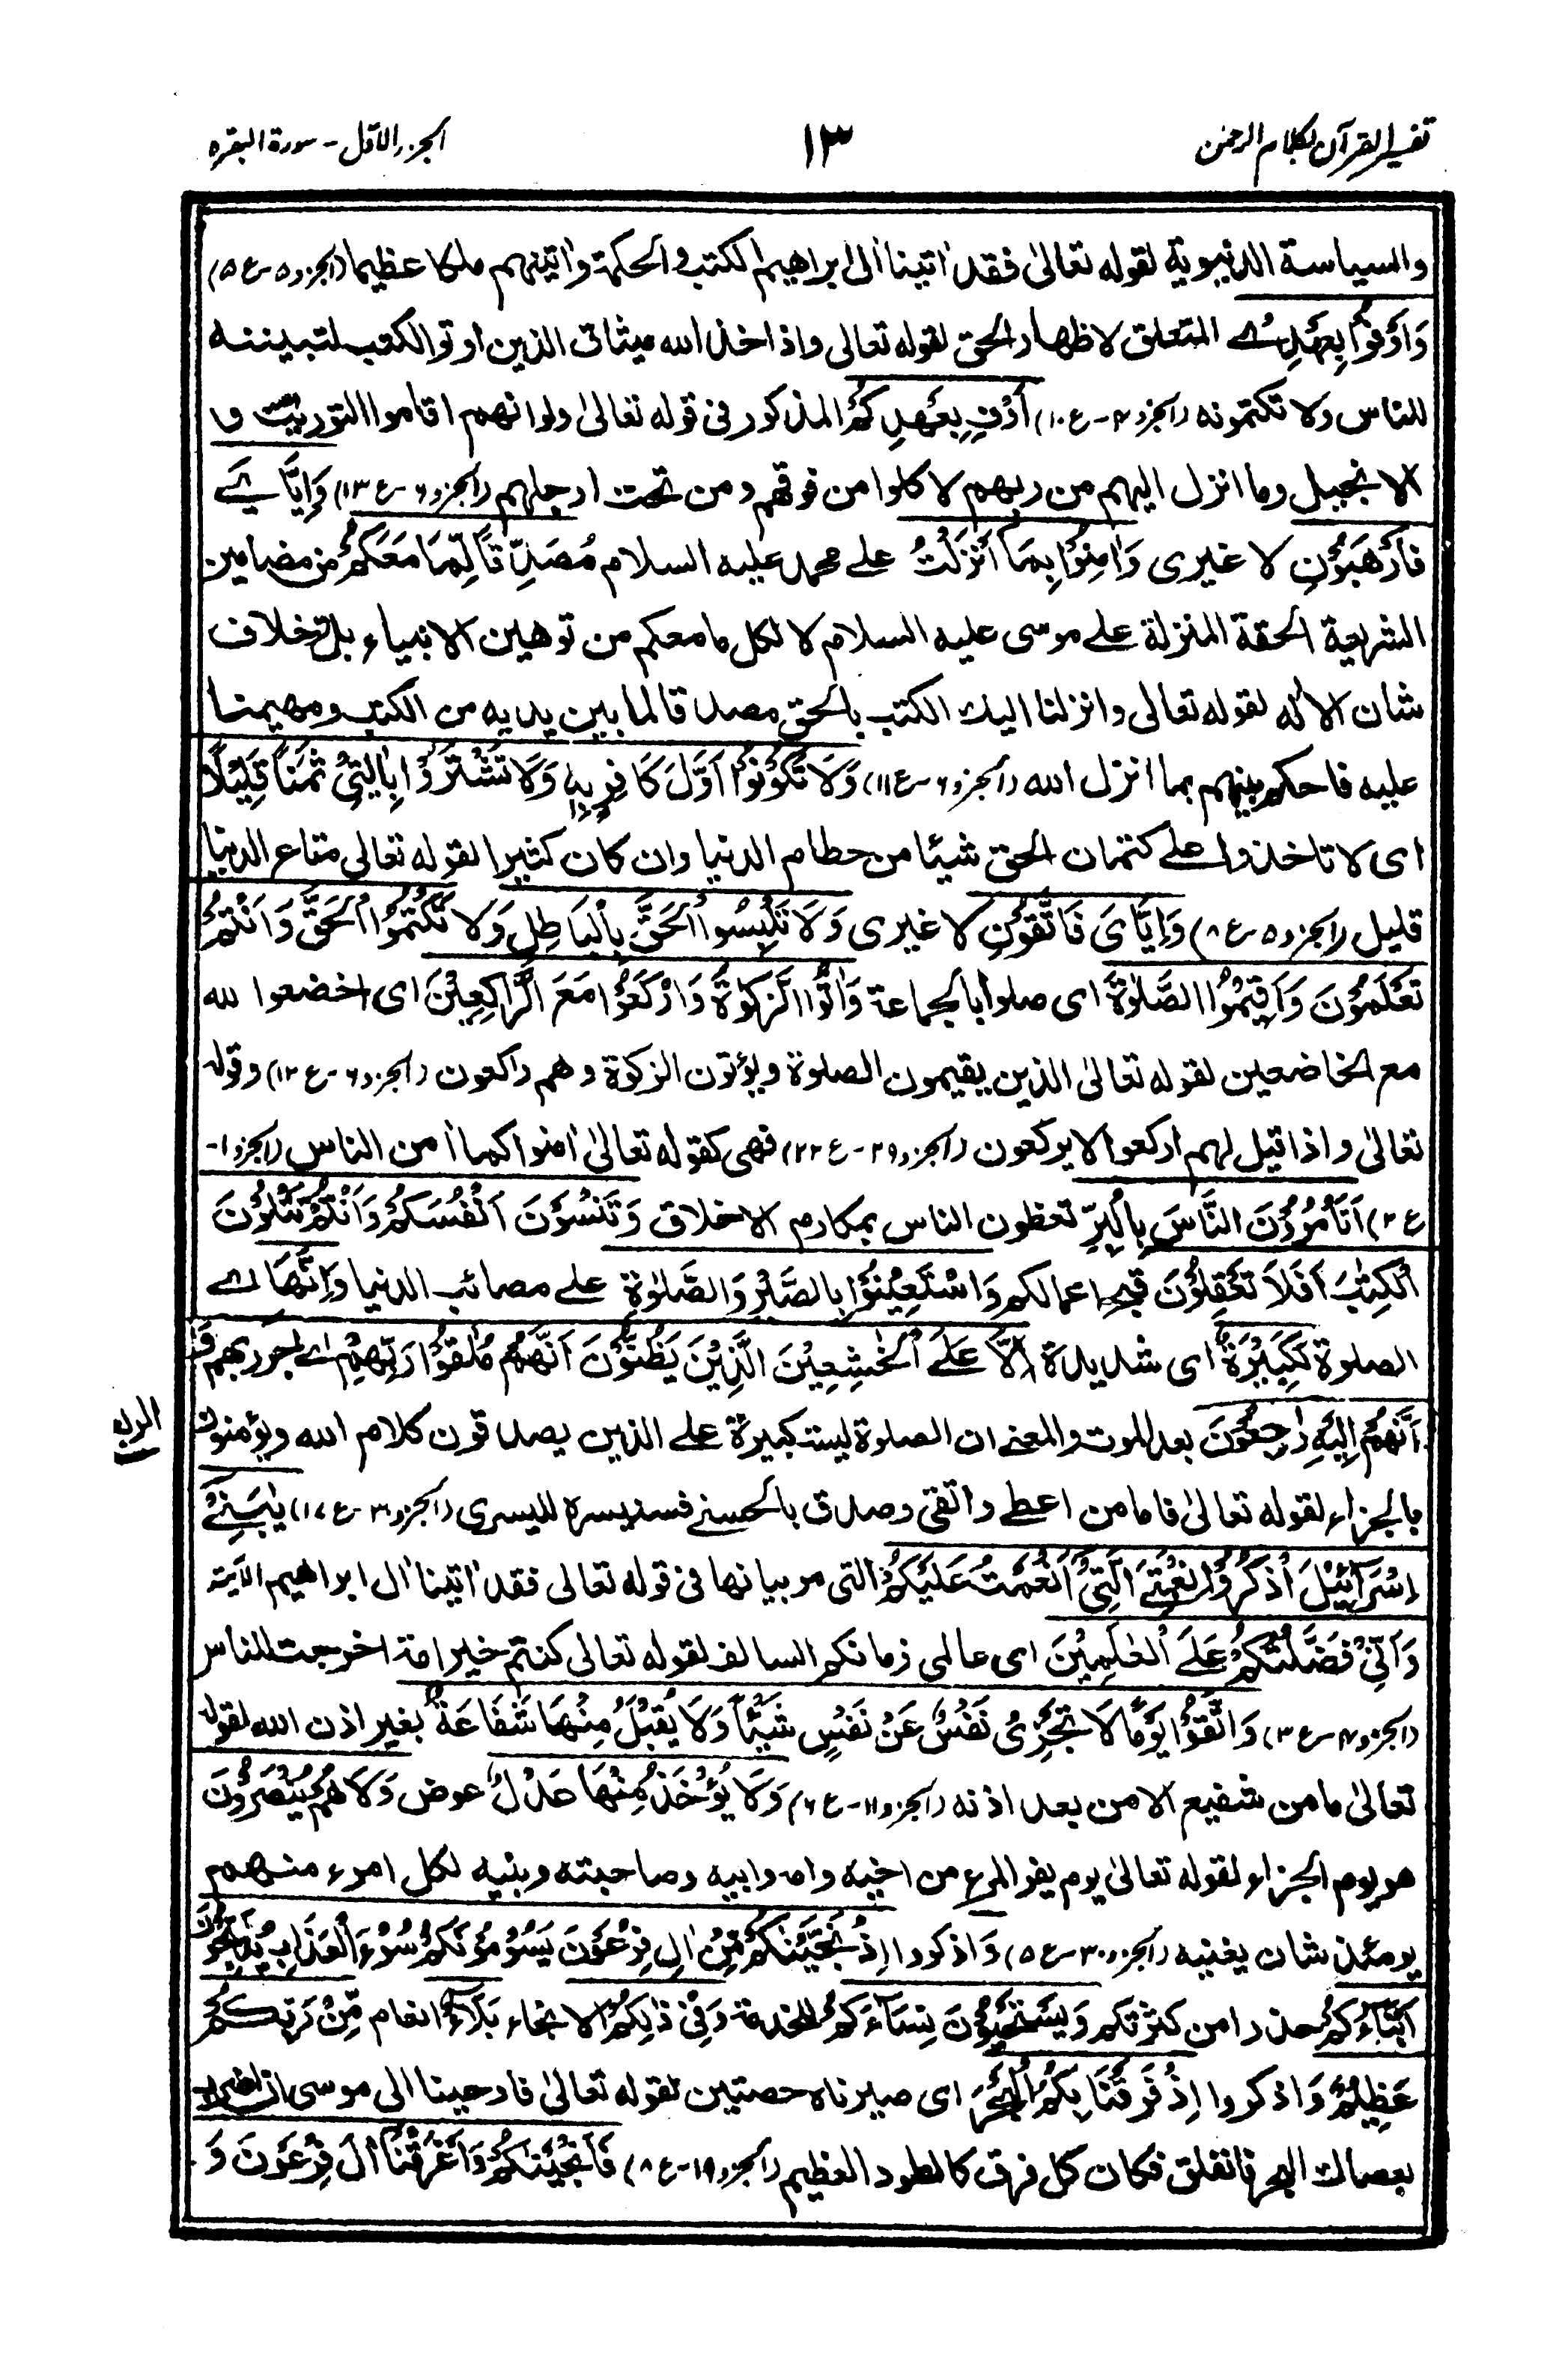 تفسير القرآن بكلام الرحمن
١٣
الجزء الاول - سورة البقره
والسياسة الدنيوية لقوله تعالىٰ فقد اٰتينا اٰل ابراهيم الكتٰب والحكمة واٰتينهم ملكا عظيما (الجزء ٥ - ع ٥)
وَاَوْفُوْا بِعَهْدِىْۤ المتعلق لاظهار الحق لقوله تعالى واذ اخذ الله ميثاق الذين اوتوا الكتٰب لتبيننه
للناس ولا تكتمونه (الجزء ٤ - ع ١٠) اُوْفِ بِعَهْدِكُمْ المذكور فى قوله تعالىٰ ولو انهم اقاموا التورىٰة و
الانجيل وما انزل اليهم من ربهم لاكلوا من فوقهم ومن تحت ارجلهم (الجزء ٦ - ع ١٣) وَاِيَّاىَ
فَارْهَبُوْنِ لا غيرى وَاٰمِنُوْا بِمَاۤ اَنْزَلْتُ على محمد عليه السلام مُصَدِّقًا لِّمَا مَعَكُمْ من مضامين
الشريعة الحقة المنزلة على موسى عليه السلام لا لكل ما معكم من توهين الانبياء بل خلاف
شان الالٰه لقوله تعالى وانزلنا اليك الكتب بالحق مصدقا لما بين يديه من الكتٰب ومهيمنا
عليه فاحكم بينهم بما انزل الله (الجزء ٦ - ع ١١) وَلَا تَكُوْنُوْۤا اَوَّلَ كَافِرٍۭ بِهٖ وَلَا تَشْتَرُوْا بِاٰيٰتِىْ ثَمَنًا قَلِيْلًا
اى لا تاخذوا على كتمان الحق شيئا من حطام الدنيا وان كان كثيرا لقوله تعالى متاع الدنيا
قليل (الجزء ٥ - ع ٨) وَاِيَّاىَ فَاتَّقُوْنِ لا غيرى وَلَا تَلْبِسُوا الْحَقَّ بِالْبَاطِلِ وَلَا تَكْتُمُوا الْحَقَّ وَاَنْتُمْ
تَعْلَمُوْنَ وَاَقِيْمُوا الصَّلٰوةَ اى صلوا بالجماعة وَاٰتُوا الزَّكٰوةَ وَارْكَعُوْا مَعَ الرَّاكِعِيْنَ اى اخضعوا لله
مع الخاضعين لقوله تعالىٰ الذين يقيمون الصلوة ويؤتون الزكوة وهم راكعون (الجزء ٦ - ع ١٢) وقوله
تعالىٰ واذا قيل لهم اركعوا لا يركعون (الجزء ٢٩ - ع ٢٢) فهى كقوله تعالىٰ اٰمنوا كما اٰمن الناس (الجزء ١ -
ع ٢) اَتَاْمُرُوْنَ النَّاسَ بِالْبِرِّ تعظون الناس بمكارم الاخلاق وَتَنْسَوْنَ اَنْفُسَكُمْ وَاَنْتُمْ تَتْلُوْنَ
الْكِتٰبَ اَفَلَا تَعْقِلُوْنَ قبح اعمالكم وَاسْتَعِيْنُوْا بِالصَّبْرِ وَالصَّلٰوةِ على مصائب الدنيا وَاِنَّهَا اى
الصلوة لَكَبِيْرَةٌ اى شديدة اِلَّا عَلَى الْخٰشِعِيْنَ الَّذِيْنَ يَظُنُّوْنَ اَنَّهُمْ مُلٰقُوْا رَبِّهِمْ اى اجر ربهم وَ
اَنَّهُمْ اِلَيْهِ رٰجِعُوْنَ بعد الموت والمعنى ان الصلوة ليست كبيرة على الذين يصدقون كلام الله ويؤمنون
بالجزاء لقوله تعالىٰ فاما من اعطى واتقى وصدق بالحسنى فسنيسره لليسرى (الجزء ٣٠ - ع ١٧) يٰبَنِىْۤ
اِسْرَآئِيْلَ اذْكُرُوْا نِعْمَتِىَ الَّتِىْۤ اَنْعَمْتُ عَلَيْكُمْ التى مر بيانها فى قوله تعالى فقد اٰتينا اٰل ابراهيم الآية
وَاَنِّىْ فَضَّلْتُكُمْ عَلَى الْعٰلَمِيْنَ اى عالمى زمانكم السالف لقوله تعالى كنتم خير امة اخرجت للناس
(الجزء ٤ - ع ٣) وَاتَّقُوْا يَوْمًا لَّا تَجْزِىْ نَفْسٌ عَنْ نَفْسٍ شَيْئًا وَلَا يُقْبَلُ مِنْهَا شَفَاعَةٌ بغير اذن الله لقوله
تعالىٰ ما من شفيع الا من بعد اذنه (الجزء ١١ - ع ٦) وَلَا يُؤْخَذُ مِنْهَا عَدْلٌ عوض وَلَا هُمْ يُنْصَرُوْنَ
هو يوم الجزاء لقوله تعالىٰ يوم يفر المرء من اخيه وامه وابيه وصاحبته وبنيه لكل امرء منهم
يومئذ شان يغنيه (الجزء ٣٠ - ع ٥) وَاذكروا اِذْ نَجَّيْنٰكُمْ مِّنْ اٰلِ فِرْعَوْنَ يَسُوْمُوْنَكُمْ سُوْٓءَ الْعَذَابِ يُذَبِّحُوْنَ
اَبْنَآءَكُمْ حذرا من كثرتكم وَيَسْتَحْيُوْنَ نِسَآءَكُمْ للخدمة وَفِىْ ذٰلِكُمْ الانجاء بَلَآءٌ انعام مِّنْ رَّبِّكُمْ
عَظِيْمٌ وَاذكروا اِذْ فَرَقْنَا بِكُمُ الْبَحْرَ اى صيرناه حصتين لقوله تعالىٰ فاوحينا الى موسى ان اضرب
بعصاك البحر فانفلق فكان كل فرق كالطود العظيم (الجزء ١٩ - ع ٨) فَاَنْجَيْنٰكُمْ وَاَغْرَقْنَاۤ اٰلَ فِرْعَوْنَ وَ